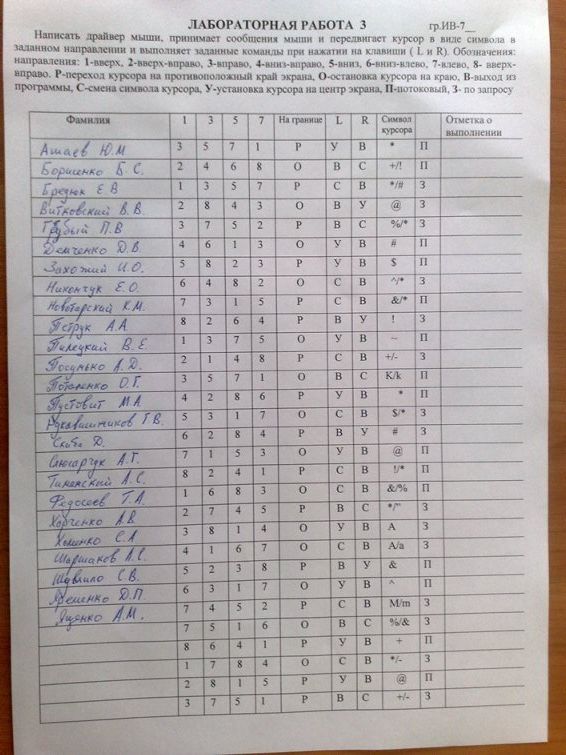 ЛАБОРАТОРНАЯ РАБОТА 3 гр.ИВ-7__
Написать драйвер мыши, принимает сообщения мыши и передвигает курсор в виде символа в
заданном направлении и выполняет заданные команды при нажатии на клавиши ( L и R). Обозначения:
направления: 1-вверх, 2-вверх-вправо, 3-вправо, 4-вниз-вправо, 5-вниз, 6-вниз-влево, 7-влево, 8- вверх-
вправо. Р-переход курсора на противоположный край экрана, О-остановка курсора на краю, В-выход из
программы, С-смена символа курсора, У-установка курсора на центр экрана, П-потоковый, З- по запросу
Фамилия 1 3 5 7 На границе L R Символ курсора Отметка о выполнении
Аташев Ю.М 3 5 7 1 Р У В * П
Борисенко Б.С. 2 4 6 8 О В С +/! П
Бредюк Е.В 1 3 5 7 Р С В */# З
Витковский В.В. 2 8 4 3 О В У @ З
Грубый П.В 3 7 5 2 Р В С %/* З
Демченко Д.В. 4 6 1 3 О У В # П
Захожий И.О. 5 8 2 3 Р У В $ П
Никончук Е.О. 6 4 8 2 О С В ^/* З
Новотарский К.М. 7 3 1 5 Р С В &/* П
Петрук А.А 8 2 6 4 Р В У ! З
Пилецкий В.Е. 1 3 7 5 О У В ~ П
Посунько А.Д. 2 1 4 8 Р С В +/- З
Потапенко О.Г. 3 5 7 1 О В С K/k П
Пустовит М.А 4 2 8 6 Р У В * П
Рукавишников Г.В. 5 3 1 7 О С В $/* З
Скиба Д. 6 2 8 4 Р В У # З
Слюсарчук А.Г. 7 1 5 3 О У В @ П
Тименский А.С. 8 2 4 1 Р С В !/* П
Федосеев Т.А. 1 6 8 3 О С В &/% П
Харченко А.В. 2 7 4 5 Р В С */" З
Хоменко С.А 3 8 1 4 О У В A З
Шаршаков А.С. 4 1 6 7 О С В A/a З
С.В. 5 2 3 8 Р В У & П
Яременко Д.П 6 3 1 7 О У В ^ П
Ященко А.М. 7 4 5 2 Р С В M/m З
7 5 1 6 О В С %/& З
8 6 4 1 Р У В + П
1 7 8 4 О С В */- З
2 8 1 5 Р У В @ П
3 7 5 1 Р В С +/- З